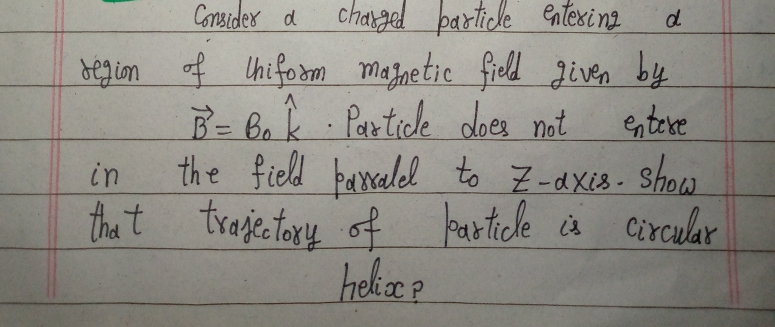 Consider a charged particle entering a
region of Uniform magnetic field given by
B⃗ = B₀ k̂ . Particle does not entere
in the field parralel to Z-axis. Show
that trajectory of particle is circular
helix?